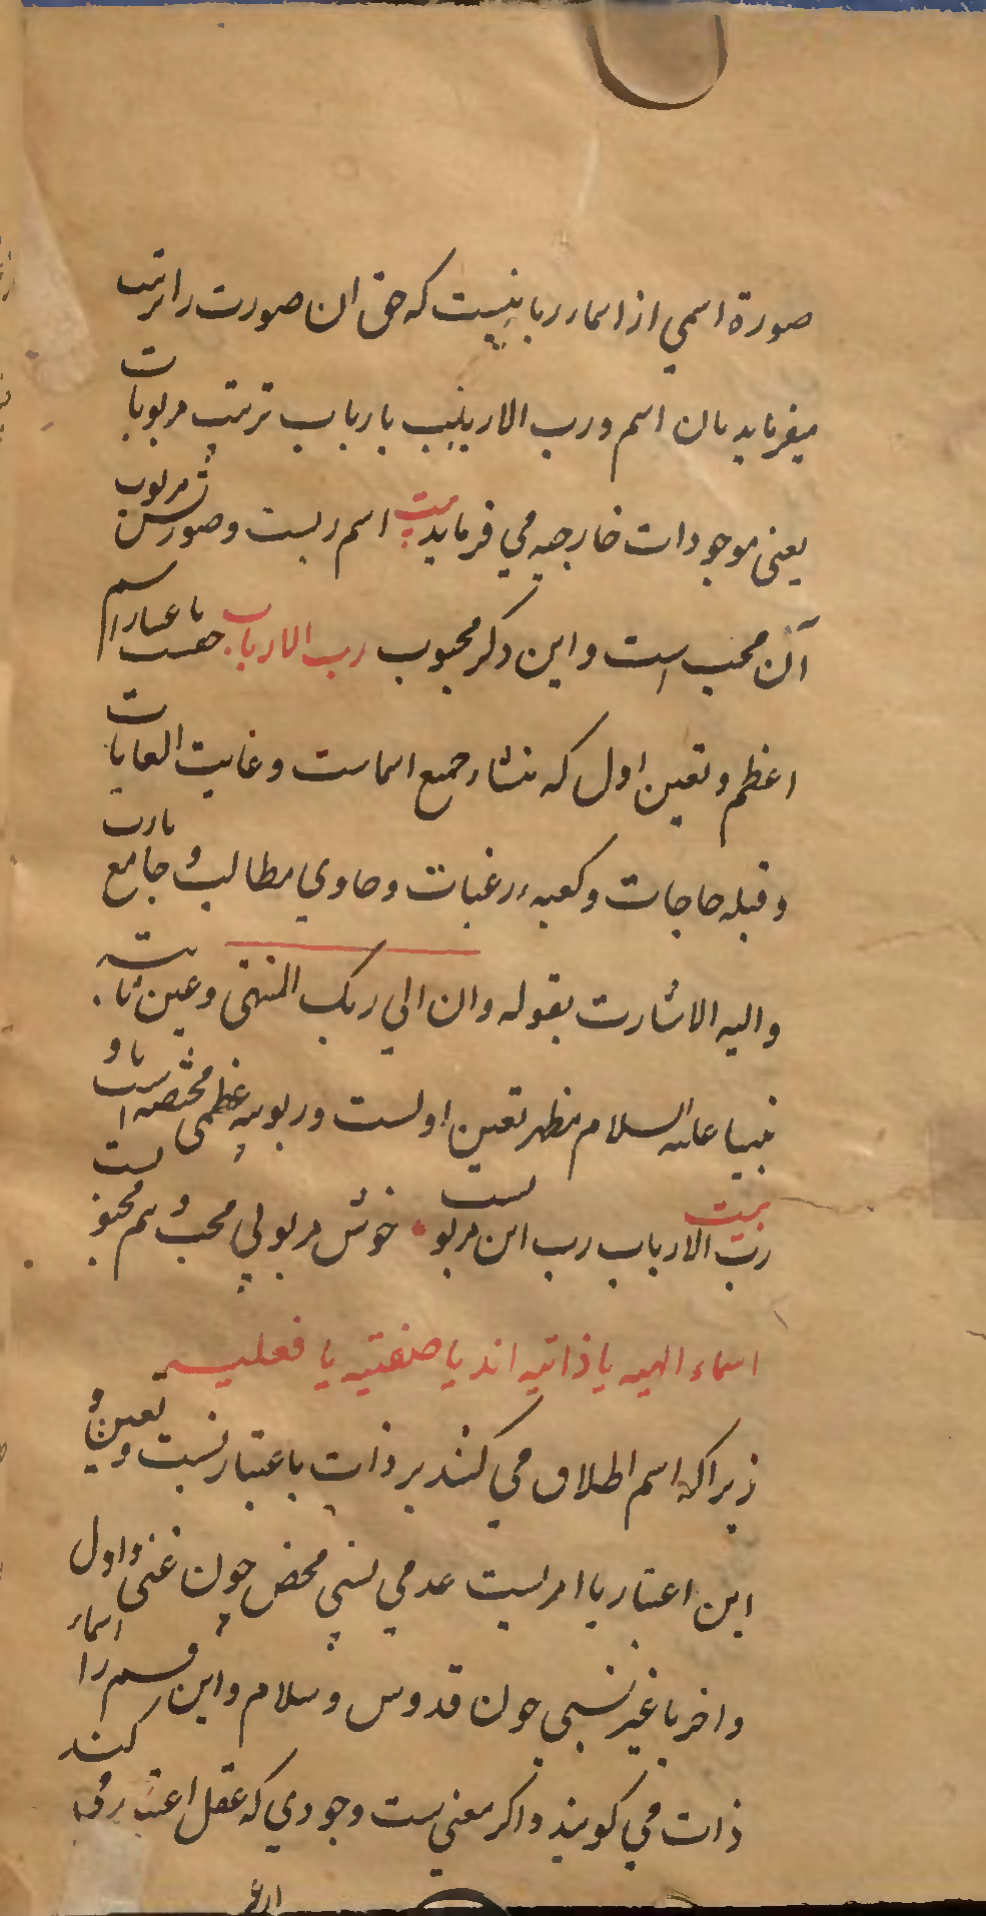 صورة اسمی از اسماء ربانیست که حق ان صورت را تربیت
میفرماید بان اسم و رب الاربابیت بارباب تربیت مربوبات
یعنی موجودات خارجیه می فرماید بیت اسم ربست و صورتش مربوب
آن محب است و این دکر محبوب رب الارباب حقست باعتبار اسم
اعظم و تعین اول که منشاء جمیع اسماست و غایت الغایات
و قبله حاجات و کعبه رغبات و حاوی مطالب و جامع مارب
و الیه الاشارت بقوله وان الی ربک المنتهی و عین ثابته
نبینا علیه السلام مظهر تعین اولست و ربوبیه عظمی مختصه است باو
بیت رب الارباب رب این مربوبست خوش مربوبی محب و هم محبوبست
اسماء الهیه یا ذاتیه اند یا صفتیه یا فعلیه
زیراکه اسم اطلاق می کنند بر ذات باعتبار نسبت و تعین و
این اعتبار یا امریست عدمی نسبی محض چون غنی و اول
و اخر یا غیر نسبی چون قدوس و سلام و این قسم را اسماء
ذات می کویند و اکر معنیست وجودی که عقل اعتبار می کند